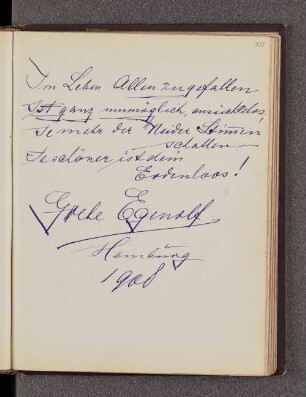 Im Leben Allen zu gefallen
Ist ganz unmöglich, aussichtslos,
Je mehr der Neider Stimmen
schallen
Je schöner ist dein
Erdenloos!
Grete Egenolf
Hamburg
1908